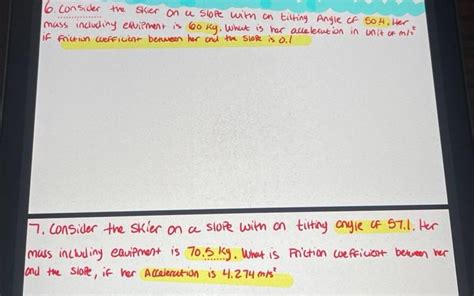 6. Consider the skier on a slope with an tilting Angle of 50.4. Her
mass including equipment is 60 kg. What is her acceleration in unit of m/s²
if friction coefficient between her and the slope is 0.1
7. Consider the skier on a slope with an tilting angle of 57.1. Her
mass including equipment is 70.5 kg. What is Friction coefficient between her
and the slope, if her Acceleration is 4.274 m/s²